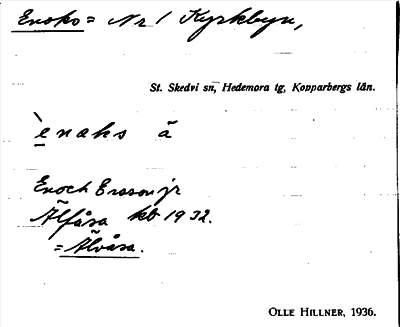 Ensko = Nr 1 Kyrkbyn,
St. Skedvi sn, Hedemora tg, Kopparbergs län.
ènaks å
Enoch Ersson jr
Älfåsa kb 1932.
= Älvåsa.
OLLE HILLNER, 1936.